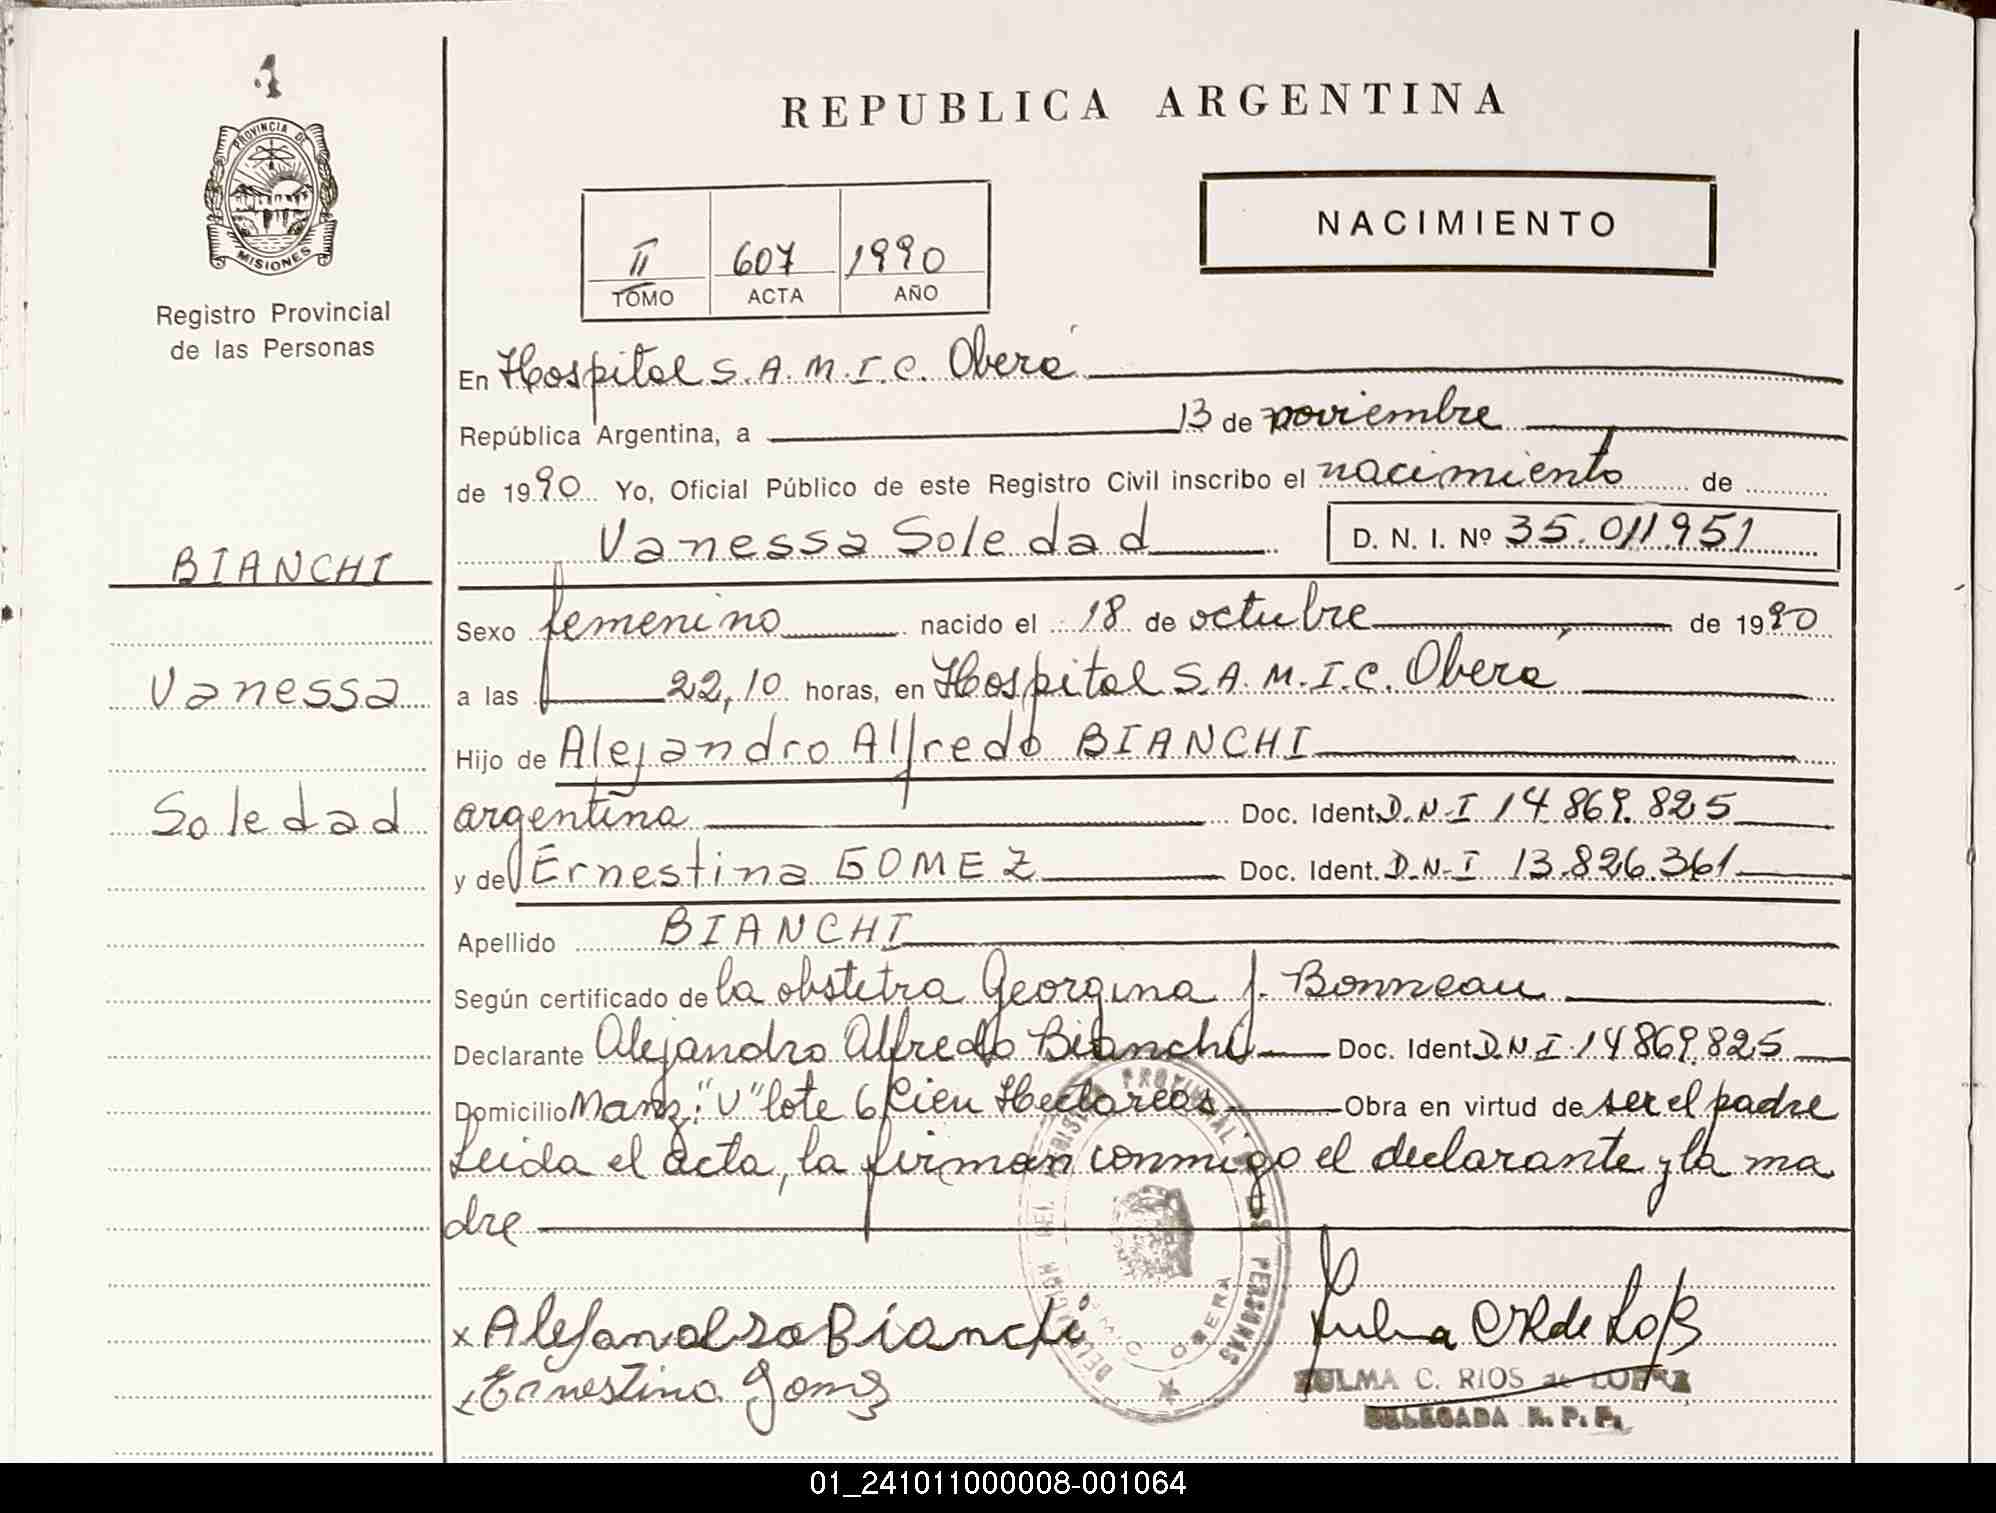 1
PROVINCIA DE
MISIONES
Registro Provincial
de las Personas
BIANCHI
Vanessa
Soledad
REPUBLICA ARGENTINA
NACIMIENTO
II 607 1990
TOMO ACTA AÑO
En Hospital S.A.M.I.C. Oberá
República Argentina, a 13 de noviembre
de 1990 Yo, Oficial Público de este Registro Civil inscribo el nacimiento de
Vanessa Soledad D. N. I. Nº 35.011951
Sexo femenino nacido el 18 de octubre de 1990
a las 22,10 horas, en Hospital S.A.M.I.C. Oberá
Hijo de Alejandro Alfredo BIANCHI
argentina Doc. Ident. D.N.I 14.869.825
y de Ernestina GOMEZ Doc. Ident. D.N.I 13.826.361
Apellido BIANCHI
Según certificado de la obstetra Georgina J. Bonneau
Declarante Alejandro Alfredo Bianchi Doc. Ident. D.N.I. 14869.825
Domicilio Manz: "U" lote 6 Cien Hectareas Obra en virtud de ser el padre
Leida el acta, la firman conmigo el declarante y la ma
dre
DELEGACION DEL REGISTRO PROVINCIAL DE LAS PERSONAS
OBERA
x Alejandro Bianchi
x Ernestina Gomez
ZULMA C. RIOS de LOPEZ
DELEGADA R. P. P.
01_241011000008-001064